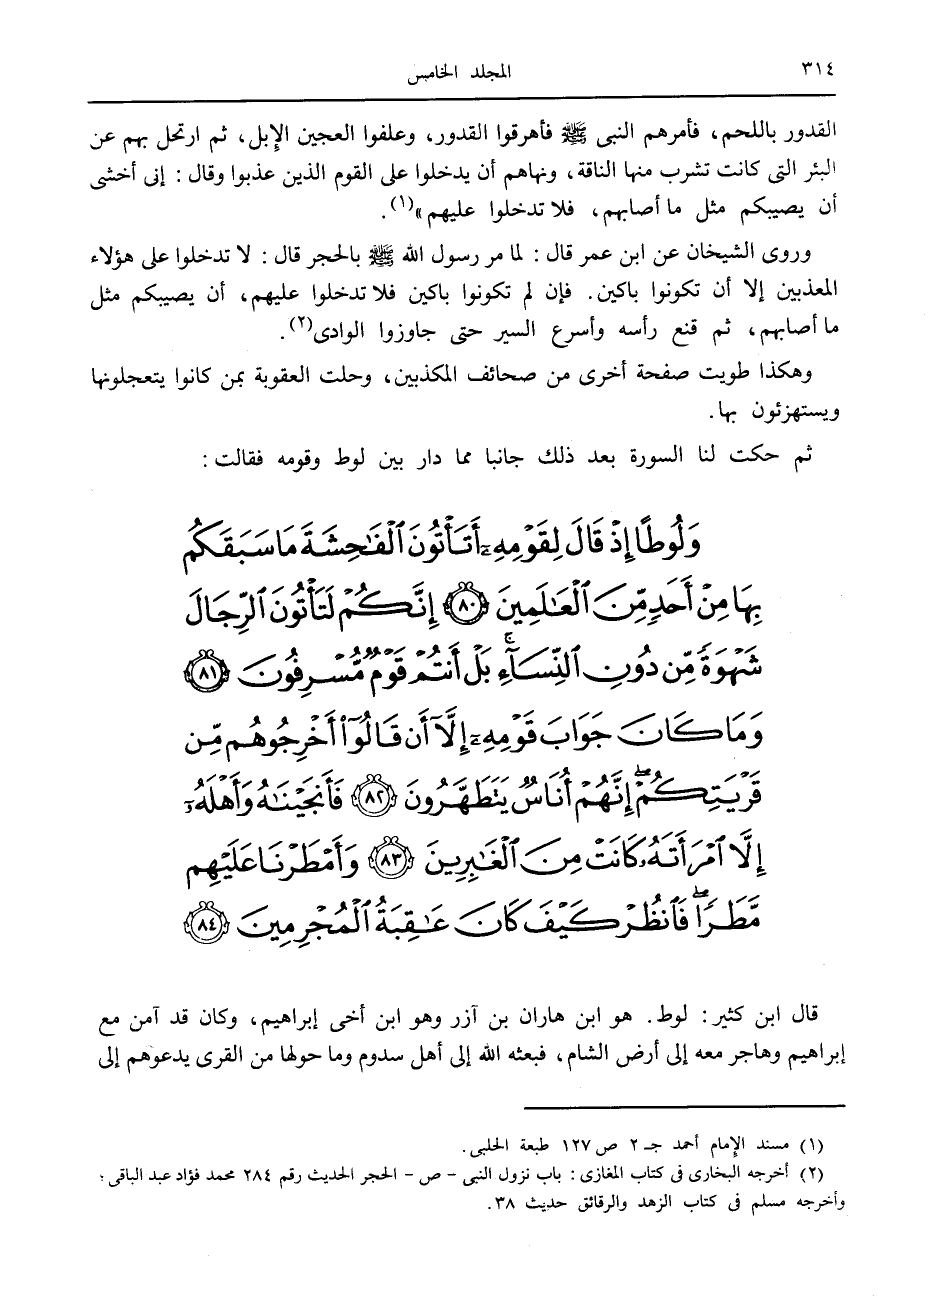 ٣١٤ المجلد الخامس
القدور باللحم، فأمرهم النبى ﷺ فأهرقوا القدور، وعلفوا العجين الإبل، ثم ارتحل بهم عن
البئر التى كانت تشرب منها الناقة، ونهاهم أن يدخلوا على القوم الذين عذبوا وقال : إنى أخشى
أن يصيبكم مثل ما أصابهم، فلا تدخلوا عليهم»(١).
وروى الشيخان عن ابن عمر قال : لما مر رسول الله ﷺ بالحجر قال : لا تدخلوا على هؤلاء
المعذبين إلا أن تكونوا باكين. فإن لم تكونوا باكين فلا تدخلوا عليهم، أن يصيبكم مثل
ما أصابهم، ثم قنع رأسه وأسرع السير حتى جاوزوا الوادى(٢).
وهكذا طويت صفحة أخرى من صحائف المكذبين، وحلت العقوبة بمن كانوا يتعجلونها
ويستهزئون بها.
ثم حكت لنا السورة بعد ذلك جانبا مما دار بين لوط وقومه فقالت :
وَلُوطًا إِذْ قَالَ لِقَوْمِهِۦٓ أَتَأْتُونَ ٱلْفَٰحِشَةَ مَا سَبَقَكُم
بِهَا مِنْ أَحَدٍ مِّنَ ٱلْعَٰلَمِينَ ٨٠ إِنَّكُمْ لَتَأْتُونَ ٱلرِّجَالَ
شَهْوَةً مِّن دُونِ ٱلنِّسَآءِ ۚ بَلْ أَنتُمْ قَوْمٌ مُّسْرِفُونَ ٨١
وَمَا كَانَ جَوَابَ قَوْمِهِۦٓ إِلَّآ أَن قَالُوٓا۟ أَخْرِجُوهُم مِّن
قَرْيَتِكُمْ ۖ إِنَّهُمْ أُنَاسٌ يَتَطَهَّرُونَ ٨٢ فَأَنجَيْنَٰهُ وَأَهْلَهُۥٓ
إِلَّا ٱمْرَأَتَهُۥ كَانَتْ مِنَ ٱلْغَٰبِرِينَ ٨٣ وَأَمْطَرْنَا عَلَيْهِم
مَّطَرًا ۖ فَٱنظُرْ كَيْفَ كَانَ عَٰقِبَةُ ٱلْمُجْرِمِينَ ٨٤
قال ابن كثير : لوط. هو ابن هاران بن آزر وهو ابن أخى إبراهيم، وكان قد آمن مع
إبراهيم وهاجر معه إلى أرض الشام، فبعثه الله إلى أهل سدوم وما حولها من القرى يدعوهم إلى
(١) مسند الإمام أحمد جـ ٢ ص ١٢٧ طبعة الحلبى.
(٢) أخرجه البخارى فى كتاب المغازى : باب نزول النبى - ص - الحجر الحديث رقم ٢٨٤ محمد فؤاد عبد الباقى؛
وأخرجه مسلم فى كتاب الزهد والرقائق حديث ٣٨.